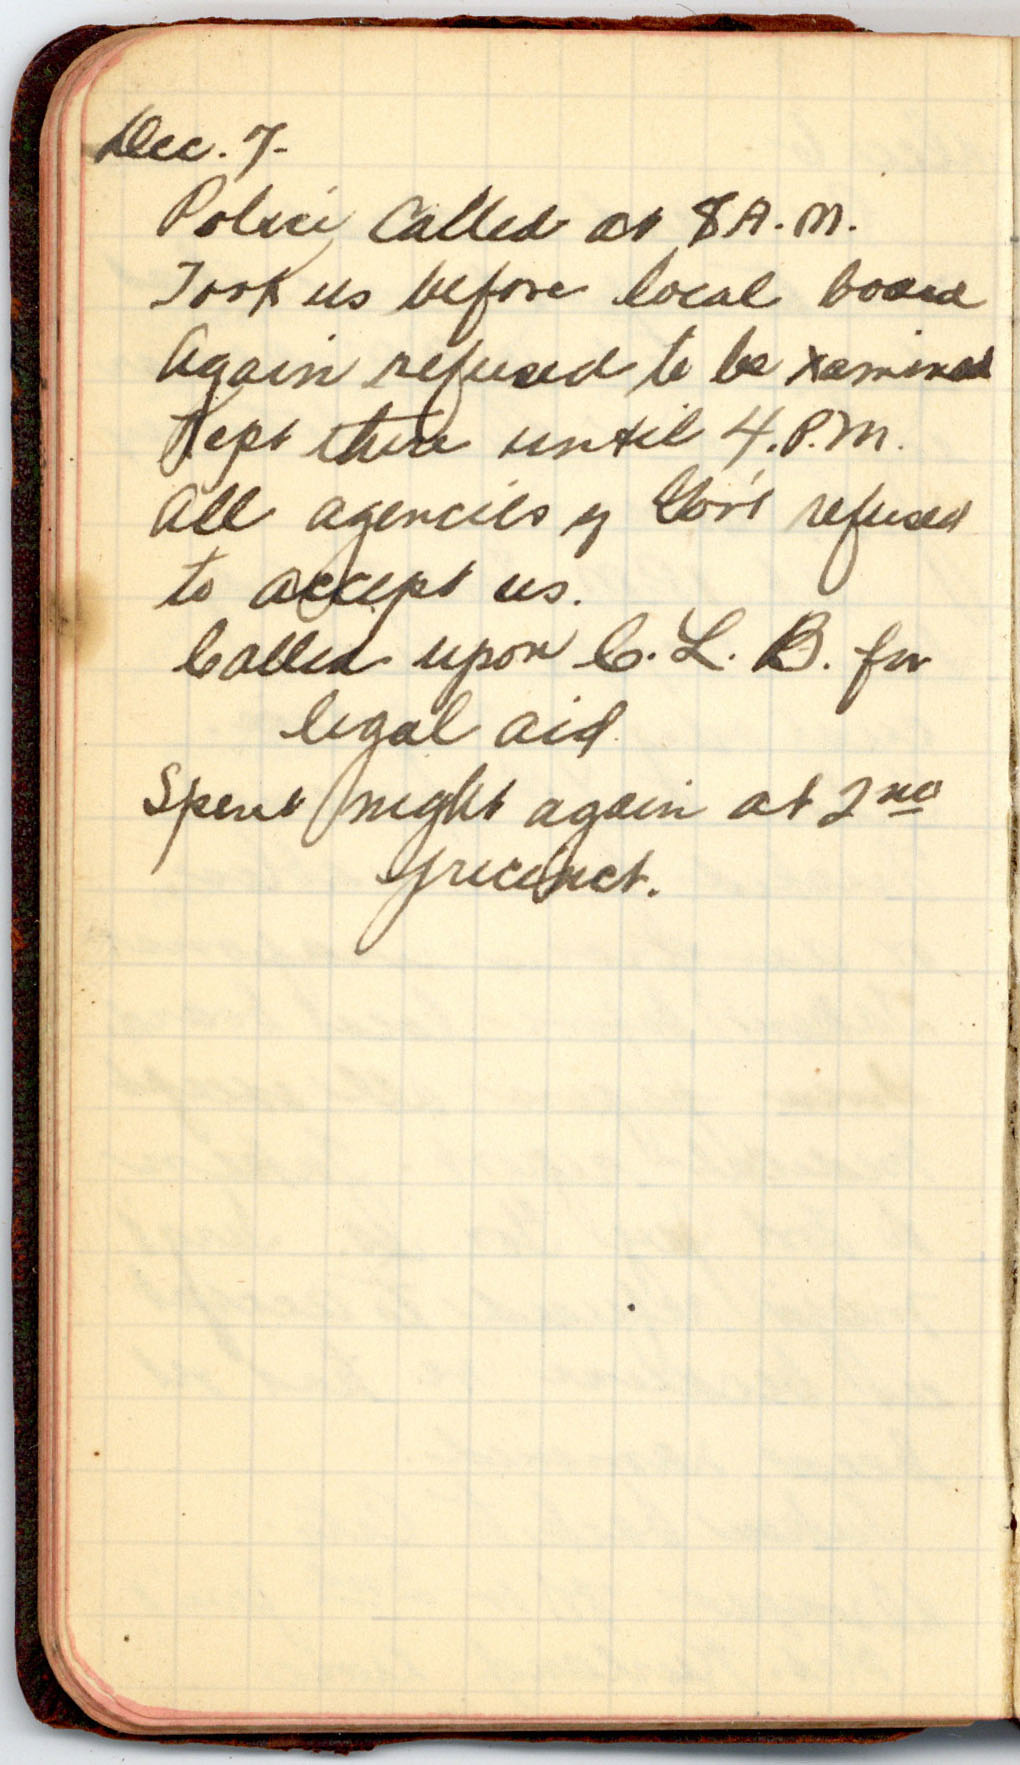 Dec. 7-
Police called at 8 A.M.
Took us before local board
Again refused to be xamined
Kept there until 4. P.M.
All agencies of Gov't refused
to accept us.
Called upon C. L. B. for
legal aid
Spent night again at 2nd
precinct.